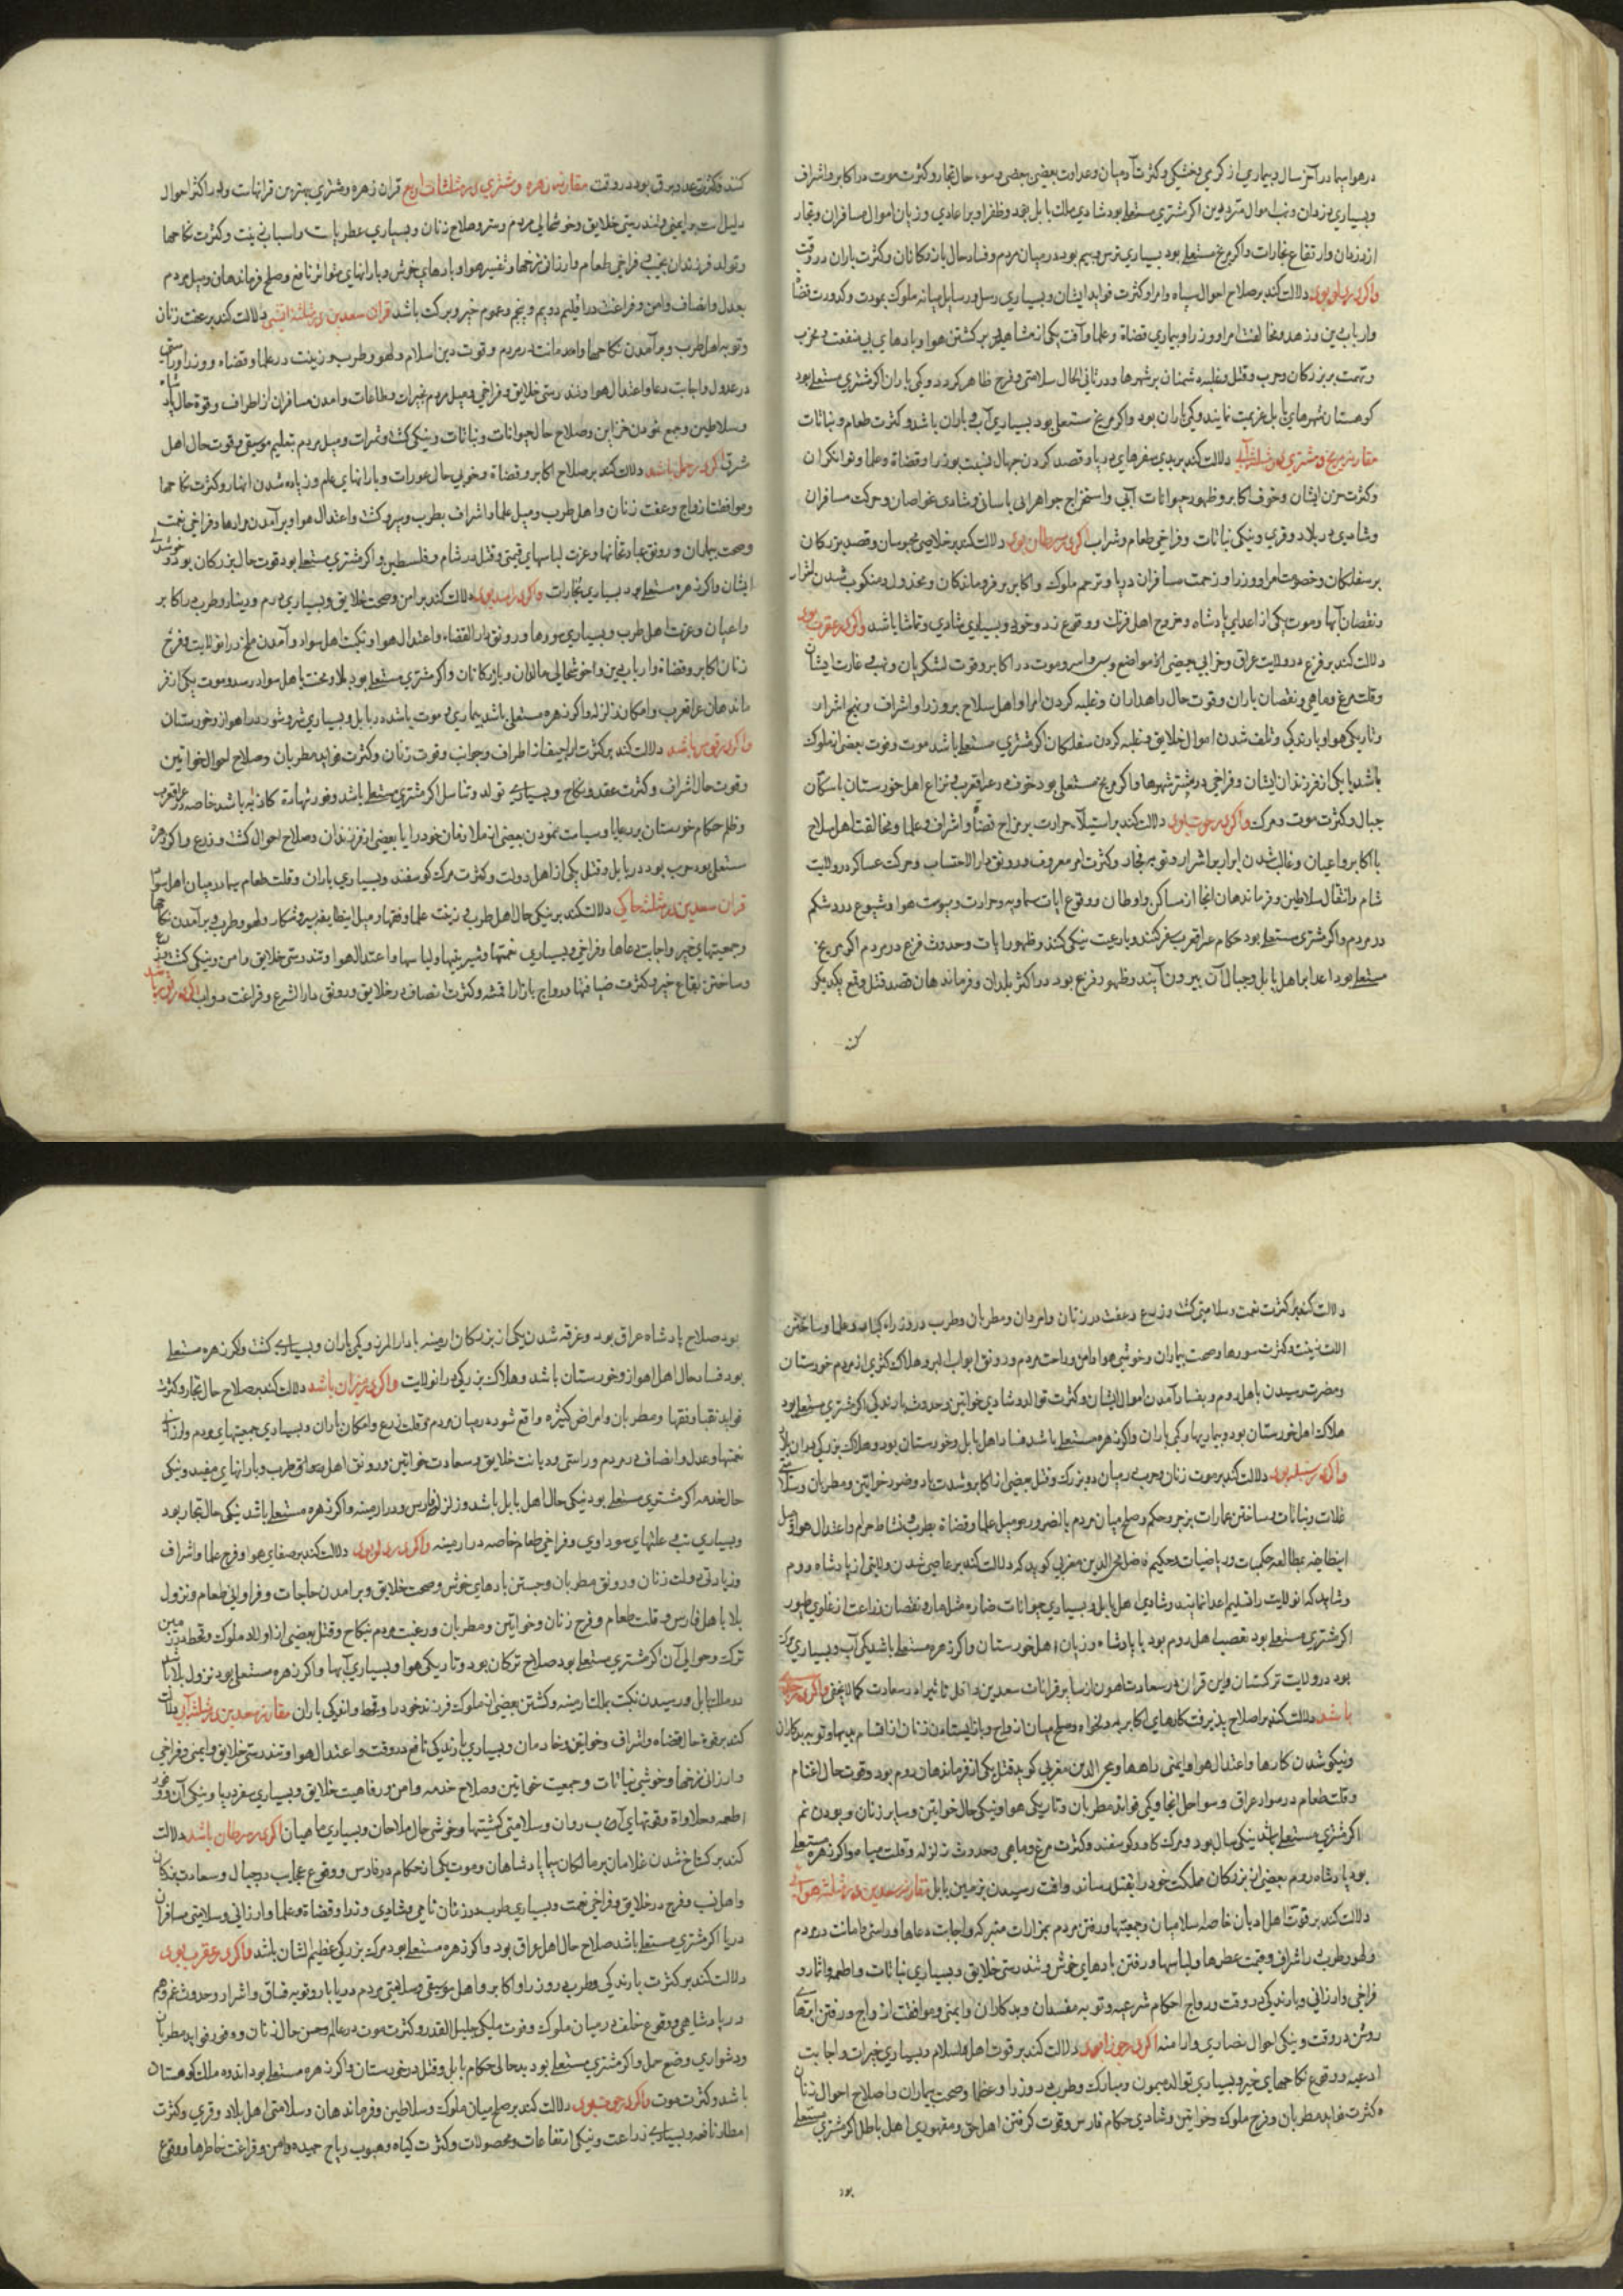 در هوا بیما در آخر سال و بیماری از گرمی و خشکی و کثرت آدمیان و عداوت بعضی ببعضی و سوء حال تجار و کثرت موت در اکابر و اشراف
و بسیاری دزدان و نهب اموال مترددین اگر مشتری مستعلی بود شادی ملک بابل بجد و ظفر او بر اعادی و زیان اموال مسافران و تجار
از دزدان و ارتفاع بخارات و اگر مریخ مستعلی بود بسیاری ترس و بیم بود در میان مردم و فساد حال بازرگانان و کثرت باران در وقت
واگر در دلو بود دلالت کند بر صلاح احوال سپاه و امرا و کثرت فواید ایشان و بسیاری رسل و رسایل میانه ملوک بمودت و کدورت قضاة
و ارباب دین و زهد و مخالفت امرا و وزرا و بیماری قضاة و علما و آفت یکی از مشاهیر بر کشتن هوا و بادهای بی منفعت و مخرب
و تهمت بر بزرگان و حرب و قتل و غلبه دشمنان بر شهرها و در ثانی الحال سلامتی و فرج ظاهر گردد و کمی باران اگر مشتری مستعلی بود
کوهستان شهرهای بابل عزیمت نمایند و کمی باران بود واگر مریخ مستعلی بود بسیاری آب و باران باشد و کثرت طعام و نباتات
مقارنه مریخ و مشتری در مثلثه آبی دلالت کند بر بدی سفرهای دریا و قصد کردن جهال نسبت بوزرا و قضاة و علما و توانگران
و کثرت حزن ایشان و خوف اکابر و ظهور حیوانات آبی و استخراج جواهر آبی باسانی و شادی غواصان و حرکت مسافران
و شادی در بلاد و قری و نیکی نباتات و فراخی طعام و شراب اگر در سرطان بود دلالت کند بر خلاصی محبوسان و قصد بزرگان
بر سفلگان و خصومت امرا و وزرا و زحمت مسافران دریا و ترحم ملوک و اکابر بر فروماندگان و مخذول و منکوب شدن اشرار
و نقصان آبها و موت یکی از اعدای پادشاه و خروج اهل فرنگ و وقوع تد و خوی و بسیاری شادی و تماشا باشد واگر در عقرب بود
دلالت کند بر فزع در ولایت عراق و خرابی بعضی از مواضع و سر و اسر و موت در اکابر و قوت لشکریان و نهب و غارت ایشان
و قلت مرغ و ماهی و نقصان باران و قوت حال راهداران و غلبه کردن امرا و اهل سلاح بر وزرا و اشراف و رنج اشرار
و تاریکی هوا و بارندگی و تلف شدن اموال خلایق و غلبه کردن سفلگان اگر مشتری مستعلی باشد موت و فوت بعضی از ملوک
باشد یا یکی از فرزندان ایشان و فراخی در بیشتر شهرها واگر مریخ مستعلی بود خوف در عراقعرب و نزاع اهل خورستان با سکان
جبال و کثرت موت و مرگ واگر در حوت بود دلالت کند بر استیلآء حرارت بر مزاج قضاة و اشراف و علما و مخالفت اهل سلاح
با اکابر و اعیان و غالب شدن ابرار بر اشرار و توبه فجار و کثرت امر معروف و رونق دار الاحتساب و حرکت عساکر در ولایت
شام و انتقال سلاطین و فرماندهان انجا از مساکن و اوطان و وقوع ایات سماویه و حرارت و یبوست هوا و شیوع درد شکم
در مردم واگر مشتری مستعلی بود حکام عراقعرب سفر کنند و بارعیت نیکی کنند و ظهور ایات و حدوث فزع در مردم اگر مریخ
مستعلی بود اعدا بر اهل بابل و جبال آن بیرون آیند و ظهور فزع بود در اکثر بلدان و فرماندهان قصد قتل و قمع یکدیگر
کنند
کنند و کثرت رعد و برق بود در وقت مقارنه زهره و مشتری در مثلثات اربع قران زهره و مشتری بهترین قرانهات و او در اکثر احوال
دلیل است بر ایمنی و تندرستی خلایق و خوشحالی مردم و ستر و صلاح زنان و بسیاری عطریات و اسباب زینت و کثرت نکاحها
و تولد فرزندان نجیب و فراخی طعام و ارزانی نرخها و تغییر هوا و بادهای خوش و بارانهای متواتر نافع و صلح فرماندهان و میل مردم
بعدل و انصاف و امن و فراغت در اقلیم دویم و پنجم و عموم خیر و برکت باشد قران سعدین در مثلثه آتشی دلالت کند بر عفت زنان
و توبه اهل طرب و برآمدن نکاحها و امد مانت در مردم و قوت دین اسلام و لهو و طرب و زینت در علما و قضاه و وزرا و راستی
در عدول و اجابت دعا و اعتدال هوا و تندرستی خلایق و فراخی و میل مردم بخیرات و طاعات و امدن مسافران از اطراف و قوة حال پادشاه
و سلاطین و جمع نمودن خزاین و صلاح حال حیوانات و نباتات و نیکی کشت و ثمرات و میل مردم بتعلیم موسیقی و قوت حال اهل
شرق اگر در حمل باشد دلالت کند بر صلاح اکابر و قضاة و خوبی حال عورات و بارانهای عام و زیاده شدن انهار و کثرت نکاحها
و موافقت ازواج و عفت زنان و اهل طرب و میل علما و اشراف بطرب و سرود و کشت و اعتدال هوا و برآمدن مرادها و فراخی نعمت
و صحت بیماران و رونق عبادتخانها و عزت لباسهای قیمتی و قتل در شام و فلسطین واگر مشتری مستعلی بود قوت حال بزرگان بود و خوشدلی
ایشان واگر زهره مستعلی بود بسیاری تجارات واگر در اسد بود دلالت کند بر امن و صحت خلایق و بسیاری درم و دینار و طرب در اکابر
و اعیان و عزت اهل طرب و بسیاری سورها و رونق دار القضاء و اعتدال هوا و نکبت اهل سواد و آمدن ملخ در انولایت و فرح
زنان اکابر و قضاة و ارباب دین و اخوشحالی مالداران و بازرگانان واگر مشتری مستعلی بود بلا و محنت باهل سواد رسد و موت یکی از فر
ماندهان عراقعرب و امکان زلزله واگر زهره مستعلی باشد بیماری و موت باشد در بابل و بسیاری شر و شور در اهواز و خورستان
واگر در قوس باشد دلالت کند بر کثرت اراجیف از اطراف و جوانب و قوت زنان و کثرت فواید مطربان و صلاح احوال خواتین
و قوت حال اشراف و کثرت عقد و نکاح و بسیاری تولد و تناسل اگر مشتری مستعلی باشد وفور شهادة کاذبه باشد خاصه در عراقعرب
و ظلم حکام خورستان بر رعایا و سیاست نمودن بعضی از ملازمان خود را یا بعضی از فرزندان و صلاح احوال کشت و زرع واگر زهره
مستعلی بود حرب بود در بابل و قتل یکی از اهل دولت و کثرت مرگ گوسفند و بسیاری باران و قلت طعام بسیار در میان اهل سواد
قران سعدین در مثلثه خاکی دلالت کند بر نیکی حال اهل طرب و زینت علما و فقها و میل اینطایفه بسیر و شکار و لهو و طرب و برآمدن نکاحها
و جمعیتهای خیر و اجابت دعاها و فراخی و بسیاری نعمتها و شیرینیها و لباسها و اعتدال هوا و تندرستی خلایق و امن و نیکی کشت و زرع
و ساختن بقاع خیر و کثرت ضیافتها و رواج بازار اقمشه و کثرت انصاف در خلایق و رونق دار الشرع و فراغت دواب اگر در ثور باشد
دلالت کند بر کثرت نعمت و سلامتی کشت و زرع و عفت در زنان و امردان و مطربان و طرب در وزراء کتاب و علما و ساختن
الات زینت و کثرت سورها و صحت بیماران و خوشی هوا و امن و راحت مردم و رونق ابواب البر و هلاک کثیری از مردم خورستان
و مضرت رسیدن باهل روم و بفساد آمدن اموال ایشان و کثرت توالد و شادی خواتین و حدوث بارندگی اگر مشتری مستعلی بود
هلاک اهل خورستان بود و بیماریها و کمی باران واگر زهره مستعلی باشد فساد اهل بابل و خورستان بود و هلاک بزرگی در ان بلاد
واگر در سنبله بود دلالت کند بر موت زنان و حرب در میان دو بزرگ و قتل بعضی از اکابر و شدت باد و ضرر خواتین و مطربان و سلامتی
غلات و نباتات و ساختن عمارات بزجر و حکم و صلح میان مردم بالضروره و میل علما و قضاة بطرب و نشاط حرام و اعتدال هوا و میل
اینطایفه بمطالعه حکمیات و ریاضیات و حکیم فاضل محی الدین مغربی گوید که دلالت کند بر عاصی شدن ولایتی از پادشاه روم
و شاید که انولایت را تسلیم اعدا نمایند و شادی اهل بابل و بسیاری حیوانات ضاره مثل مار و نقصان زراعت از غلوی طیور
اگر مشتری مستعلی بود تعصب اهل روم بود با پادشاه و زیان اهل خورستان واگر زهره مستعلی باشد کمی آب و بسیاری مرگ
بود در ولایت ترکستان و این قران در سعادت اهون از سایر قرانات سعدین و اقل تاثیر اند در سعادت کما لایخفی واگر در جدی
باشد دلالت کند بر اصلاح پذیرفت کارهای اکابر بدلخواه و صلح میان ازواج و باز ایستادن زنان از اقسام عیبها و توبه بدکاران
و نیکو شدن کارها و اعتدال هوا و ایمنی راهها و محی الدین مغربی گوید قتل یکی از فرماندهان روم بود و قوت حال اغنام
و قلت طعام در سواد عراق و سواحل انجا و کمی فواید مطربان و تاریکی هوا و نیکی حال خواتین و سایر زنان و بودن نم
اگر مشتری مستعلی باشد نیکی سال بود و مرگ گاو و گوسفند و کثرت مرغ و ماهی و حدوث زلزله و قلت میاه واگر زهره مستعلی
بود پادشاه روم بعضی از بزرگان مملکت خود را بقتل رساند و افت رسیدن بزمین بابل مقارنه سعدین در مثلثه هوائی
دلالت کند بر قوت اهل ادیان خاصه اسلامیان و جمعیتها و رفتن مردم بمزارات متبرکه و اجابت دعاها و راستی و امانت در مردم
و لهو و طرب در اشراف و قیمت عطرها و لباسها و رفتن بادهای خوش و تندرستی خلایق و بسیاری نباتات و اطعمه و اثمار و
فراخی و ارزانی و بارندگی در وقت و رواج احکام شرعیه و توبه مفسدان و بدکاران و ایمنی و موافقت ازواج و رفتن ابرهای
روشن در وقت و نیکی احوال نصاری و ارامنه اگر در جوزا بود دلالت کند بر قوت اهل اسلام و بسیاری خیرات و اجابت
ادعیه و وقوع نکاحهای خیر و بسیاری توالد میمون و مبارک و طرب در وزرا و عظما و صحت بیماران و اصلاح احوال زنان
و کثرت فواید مطربان و فرح ملوک و خواتین و شادی حکام فارس و قوت گرفتن اهل حق و مقهوری اهل باطل اگر مشتری مستعلی
بود
بود صلاح پادشاه عراق بود و غرقه شدن یکی از بزرگان ارمینه یا دار المرز و کمی باران و بسیاری کشت واگر زهره مستعلی
بود فساد حال اهل اهواز و خورستان باشد و هلاک بزرگی در انولایت واگر در میزان باشد دلالت کند بر صلاح حال تجار و کثرت
فواید نقبا و فقها و مطربان و امراض کثیره واقع شود در میان مردم و قلت زرع و امکان باران و بسیاری جمعیتهای مردم و ارزانی
نعمتها و عدل و انصاف در مردم و راستی و دیانت خلایق و سعادت خواتین و رونق اهل معانی و طرب و بارانهای مفید و نیکی
حال خدمه اگر مشتری مستعلی بود نیکی حال اهل بابل باشد و زلزله در فارس و در ارمینه واگر زهره مستعلی باشد نیکی حال تجار بود
و بسیاری تب و علتهای سوداوی و فراخی طعام خاصه در ارمینه واگر در دلو بود دلالت کند بر صفای هوا و فرح علما و اشراف
و زیادتی دولت زنان و رونق مطربان و جستن بادهای خوش و صحت خلایق و برامدن حاجات و فراوانی طعام و نزول
بلا باهل فارس و قلت طعام و فرح زنان و خواتین و مطربان و رغبت مردم بنکاح و قتل بعضی از اولاد ملوک و قحط در زمین
ترک و حوالی آن اگر مشتری مستعلی بود صلاح ترکان بود و تاریکی هوا و بسیاری آبها واگر زهره مستعلی بود نزول بلا باشد
در ملک بابل و رسیدن نکبت بملک ارمینه و کشتن بعضی از ملوک فرزند خود را و قحط و اندکی باران مقارنه سعدین در مثلثه آبی دلالت
کند بر قوة حال قضاه و اشراف و خواتین و خادمان و بسیاری بارندگی نافع در وقت و اعتدال هوا و تندرستی خلایق و ایمنی و فراخی
و ارزان نرخها و خوشی نباتات و جمعیت خواتین و صلاح خدمه و امن و رفاهیت خلایق و بسیاری سفر دریا و نیکی آن و وفور
اطعمه و حلاواة و قوتهای آب روان و سلامتی کشتیها و خوشی حال ملاحان و بسیاری ماهیان اگر در سرطان باشد دلالت
کند بر گستاخ شدن غلامان بر مالکان یا پادشاهان و موت یکی از حکام در فارس و وقوع عجایب در جبال و سعادت بندگان
و اهل نسب و فرح در خلایق و فراخی نعمت و بسیاری طرب در زنان نامی و شادی وزرا و قضاة و علما و ارزانی و سلامتی مسافران
دریا اگر مشتری مستعلی باشد صلاح حال اهل عراق بود واگر زهره مستعلی بود مرگ بزرگی عظیم الشان باشد واگر در عقرب بود
دلالت کند بر کثرت بارندگی و طرب در وزرا و اکابر و اهل موسیقی و سلامتی مردم دریابار و توبه فساق و اشرار و حدوث غم و هم
در پادشاهی و وقوع خلف در میان ملوک و فوت ملکی جلیل القدر و کثرت موت در عالم و حسن حال زنان و وفور فواید مطربان
و دشواری وضع حمل واگر مشتری مستعلی بود بدحالی حکام بابل و قتل در خورستان واگر زهره مستعلی بود اندوه ملک کوهستان
باشد و کثرت موت واگر در حوت بود دلالت کند بر صلح میان ملوک و سلاطین و فرماندهان و سلامتی اهل بلاد و قری و کثرت
امطار نافعه و بسیاری زراعت و نیکی ارتفاعات و محصولات و کثرت گیاه و هبوب ریاح حمیده و امن و فراغت خاطرها و وقوع